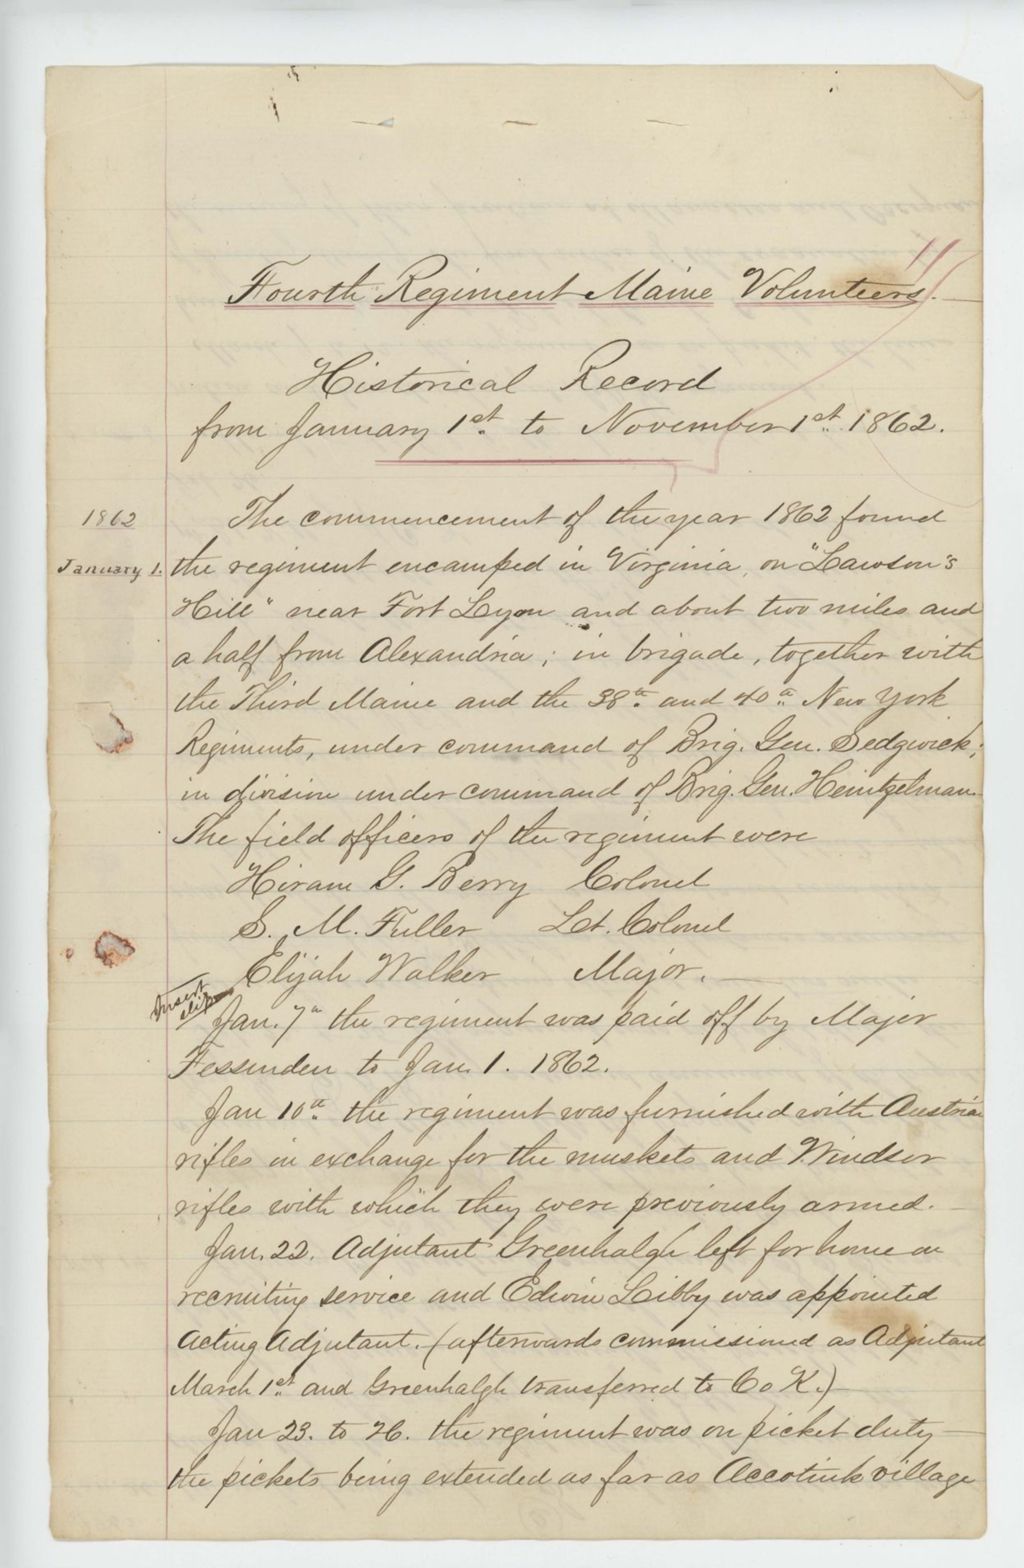 11
Fourth Regiment Maine Volunteers.
Historical Record
from January 1st. to November 1st. 1862.
1862
The commencement of the year 1862 found
January 1.
the regiment encamped in Virginia, on "Lawson's
Hill" near Fort Lyon and about two miles and
a half from Alexandria; in brigade, together with
the Third Maine and the 38th. and 40th. New York
Regiments, under command of Brig. Gen. Sedgwick;
in division under command of Brig. Gen. Heintzelman.
The field officers of the regiment were
Hiram G. Berry Colonel
S. M. Fuller Lt. Colonel
Elijah Walker Major.
Insert slip
Jan. 7th the regiment was paid off by Major
Fessenden to Jan. 1. 1862.
Jan 10th. the regiment was furnished with Austrian
rifles in exchange for the muskets and Windsor
rifles with which they were previously armed.
Jan. 22. Adjutant Greenhalgh left for home on
recruiting service and Edwin Libby was appointed
Acting Adjutant. (afterwards commissioned as Adjutant
March 1st. and Greenhalgh transferred to Co K.)
Jan 23. to 26. the regiment was on picket duty
the pickets being extended as far as Accotink village